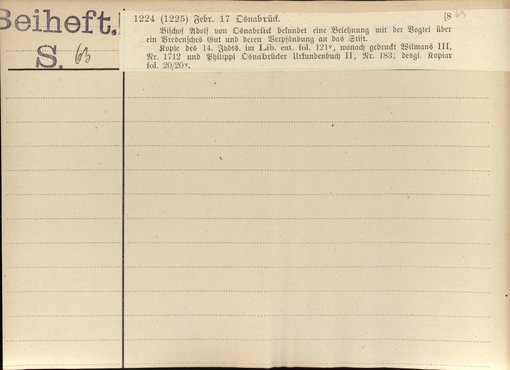 Beiheft.
S. 63
1224 (1225) Febr. 17 Osnabrück. [8 63
Bischof Adolf von Osnabrück bekundet eine Belehnung mit der Vogtei über
ein Vredensches Gut und deren Verpfändung an das Stift.
Kopie des 14. Jhdts. im Lib. cat. fol. 121v, wonach gedruckt Wilmans III,
Nr. 1712 und Philippi Osnabrücker Urkundenbuch II, Nr. 183; desgl. Kopiar
fol. 20/20v.